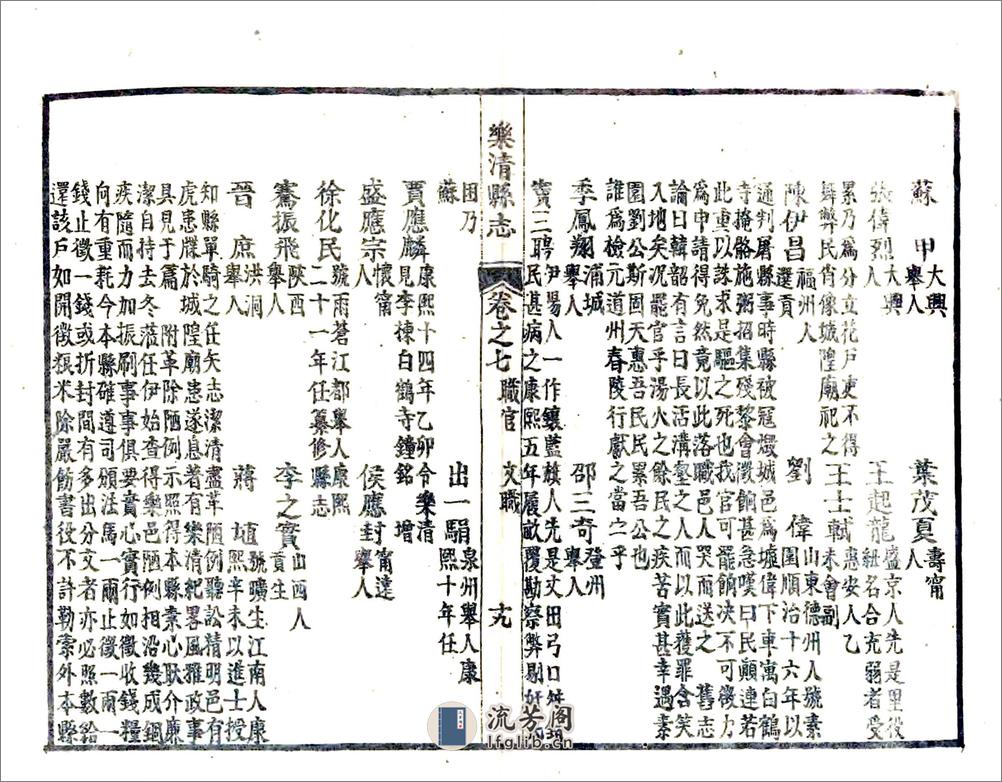 蘇甲 大興舉人 葉茂夏 壽甯人
張偉烈 大興人 王起龍 盛京人先是里役
累乃為分立花戶吏不得 紐名合充弱者受
舞弊民肖像城隍廟祀之 王士軾 惠安人乙未會副
陳伊昌 福州人選貢 劉偉 山東德州人號素園順治十六年以
通判屠縣事時縣被寇燬城邑為墟偉下車寓白鶴
寺掩骼施粥招集殘黎會徵餉甚急嘆曰民顛連若
此重以誅求是驅之死也我官可罷餉決不可徵力
為申請得免然竟以此落職邑人哭而送之 舊志
論曰韓韶有言曰長活溝壑之人而以此獲罪含笑
入地矣况罷官乎湯火之餘民之疾苦實甚幸遇素
園劉公斯固天惠吾民民累吾公也
誰為檢元道州舂陵行獻之當寧乎
季鳳翔 浦城舉人 邵三奇 登州舉人
竇三聘 伊陽人一作鑲藍旗人先是丈田弓口
民甚病之康熙五年履畝覆勘察弊剔奸
田乃蘇 出一騆 泉州舉人康熙十年任
賈應麟 康熙十四年乙卯令樂清見李棟白鶴寺鐘銘 增
盛應宗 懷甯人 侯應封 甯遠舉人
徐化民 號雨蒼江都舉人康熙二十一年任纂修縣志
騫振飛 陝西舉人 李之實 山西人貢生
晉庶 洪洞舉人 蔣埴 號曠生江南人康熙辛未以進士授
知縣單騎之任矢志潔清盡革陋例聽訟精明邑有
虎患牒於城隍廟患遂息著有樂清紀畧風雅政事
具見于篇 附革除陋例示照得本縣素心耿介廉
潔自持去冬蒞任伊始查得樂邑陋例相沿幾成錮
疾隨而力加振刷事事俱要實心實行如徵收錢糧
向有重耗今本縣確遵司頒法馬一兩止徵一兩一
錢止徵一錢或折封間有多出分文者亦必照數給
還該戶如開徵糧米除嚴飭書役不許勒索外本縣
樂清縣志 卷之七 職官 文職 十九
流芳阁
lfglib.cn